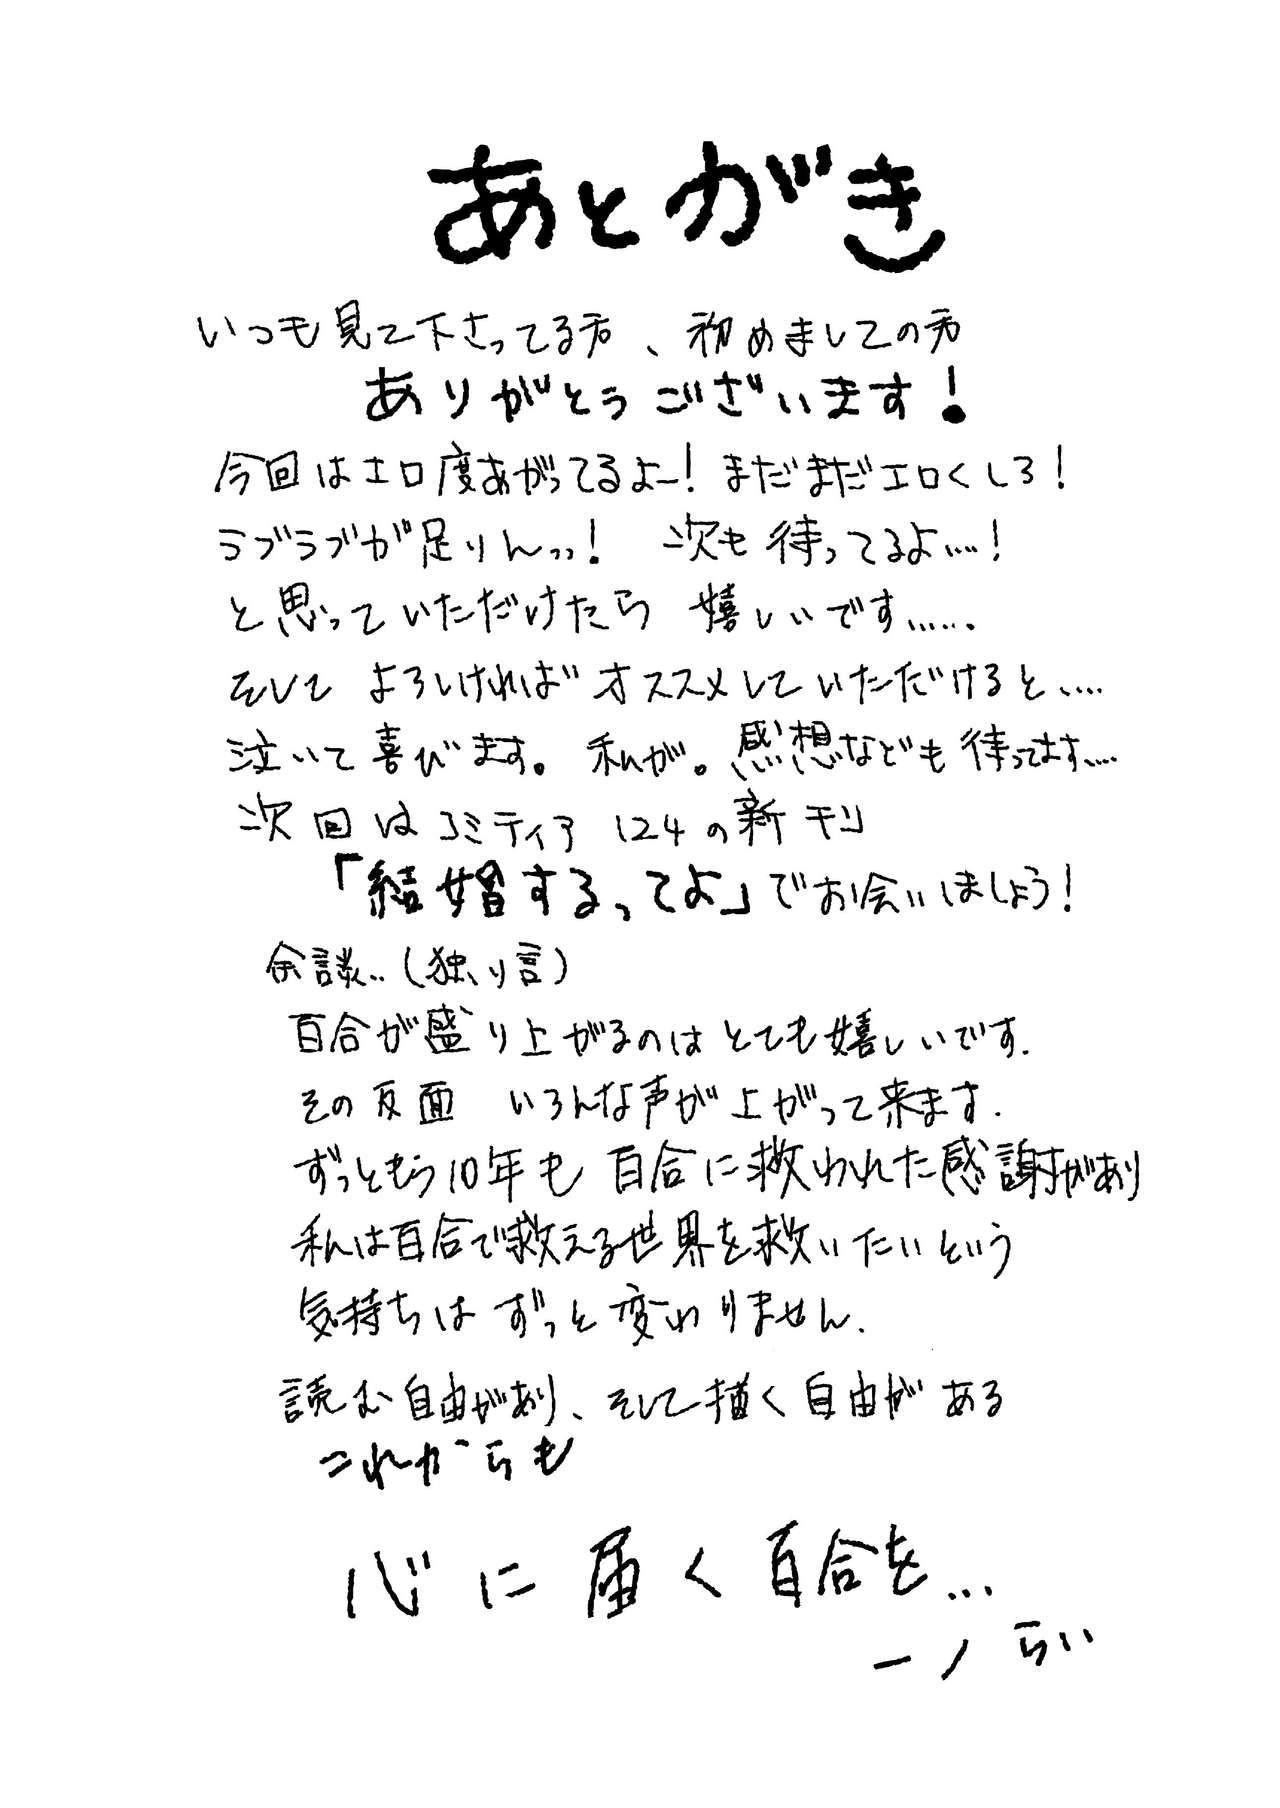 あとがき
いつも見て下さってる方、初めましての方
ありがとうございます！
今回はエロ度あがってるよー！まだまだエロくしろ！
ラブラブが足りんっっ！ 次も待ってるよ……！
と思っていただけたら 嬉しいです……。
そして よろしければ オススメしていただけると……
泣いて喜びます。私が。感想なども待ってます……
次回はコミティア124の新刊
「結婚するってよ」でお会いしましょう！
余談..（独り言）
百合が盛り上がるのは とても嬉しいです.
その反面 いろんな声が上がって来ます.
ずっともう10年も 百合に救われた感謝があり
私は百合で救える世界を救いたいという
気持ちは ずっと変わりません.
読む自由があり、そして描く自由が ある
これからも
心に届く百合を…
一ノらい